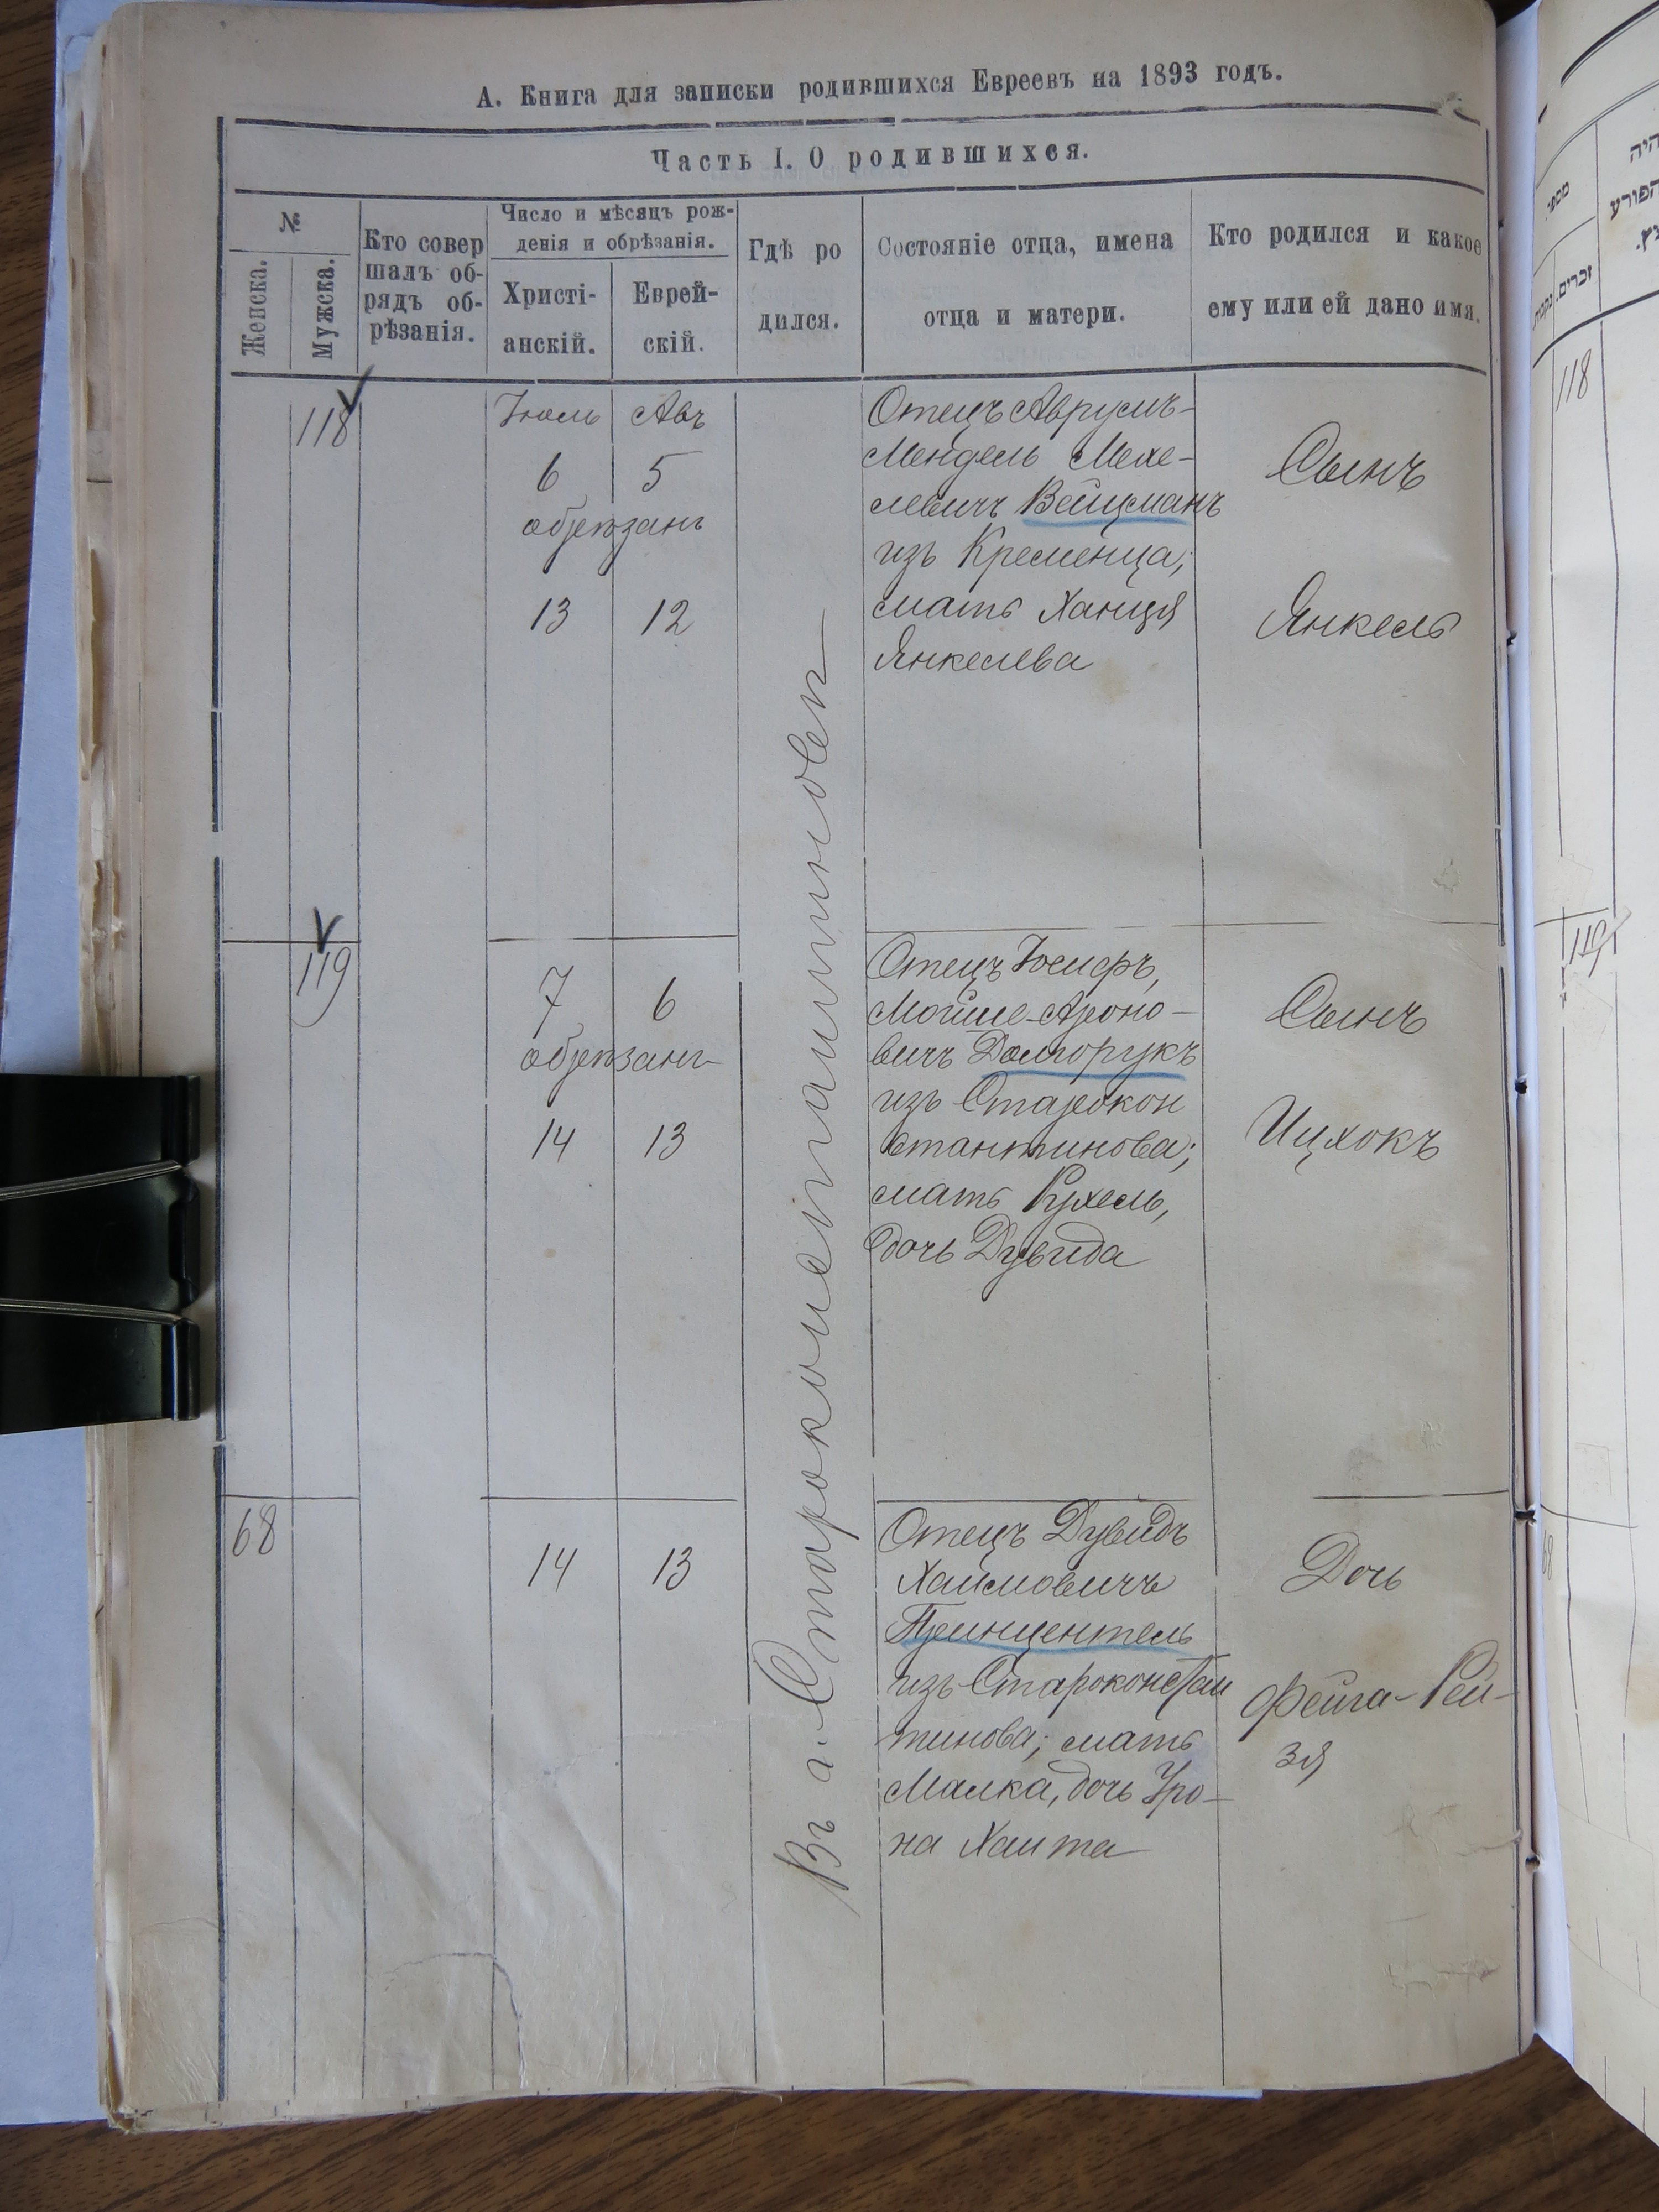 А. Книга для записки родившихся Евреевъ на 1893 годъ.
Часть I. О родившихся.
№
Женска.
Мужска.
Кто совер
шалъ об-
рядъ об-
рѣзанія.
Число и мѣсяцъ рож-
денія и обрѣзанія.
Христі-
анскій.
Еврей-
скій.
Гдѣ ро
дился.
Состояніе отца, имена
отца и матери.
Кто родился и какое
ему или ей дано имя.
118
Іюль Авъ
6 5
обрѣзанъ
13 12
Отецъ Аврумъ-
Мендель Мехе-
левичъ Вейцманъ
изъ Кременца;
мать Ханця
Янкелева
Сынъ
Янкель
Въ г. Староконстантиновѣ
119
7 6
обрѣзанъ
14 13
Отецъ Іосифъ,
Мойше-Ароно-
вичъ Долгорукъ
изъ Старокон
стантинова;
мать Рухель,
дочь Дувида
Сынъ
Ицхокъ
68
14 13
Отецъ Дувидъ
Хаимовичъ
Принцентель
изъ Староконстан
тинова; мать
Малка, дочь Уро-
на Хаита
Дочь
Фейга-Рей-
зя
היה
מספר
זכרים.
118
119
68